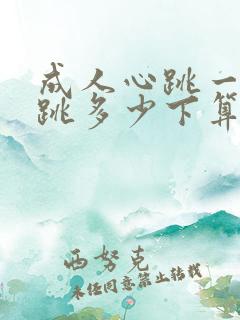 成人心跳一
跳多少下算
西努克
未经同意禁止转载